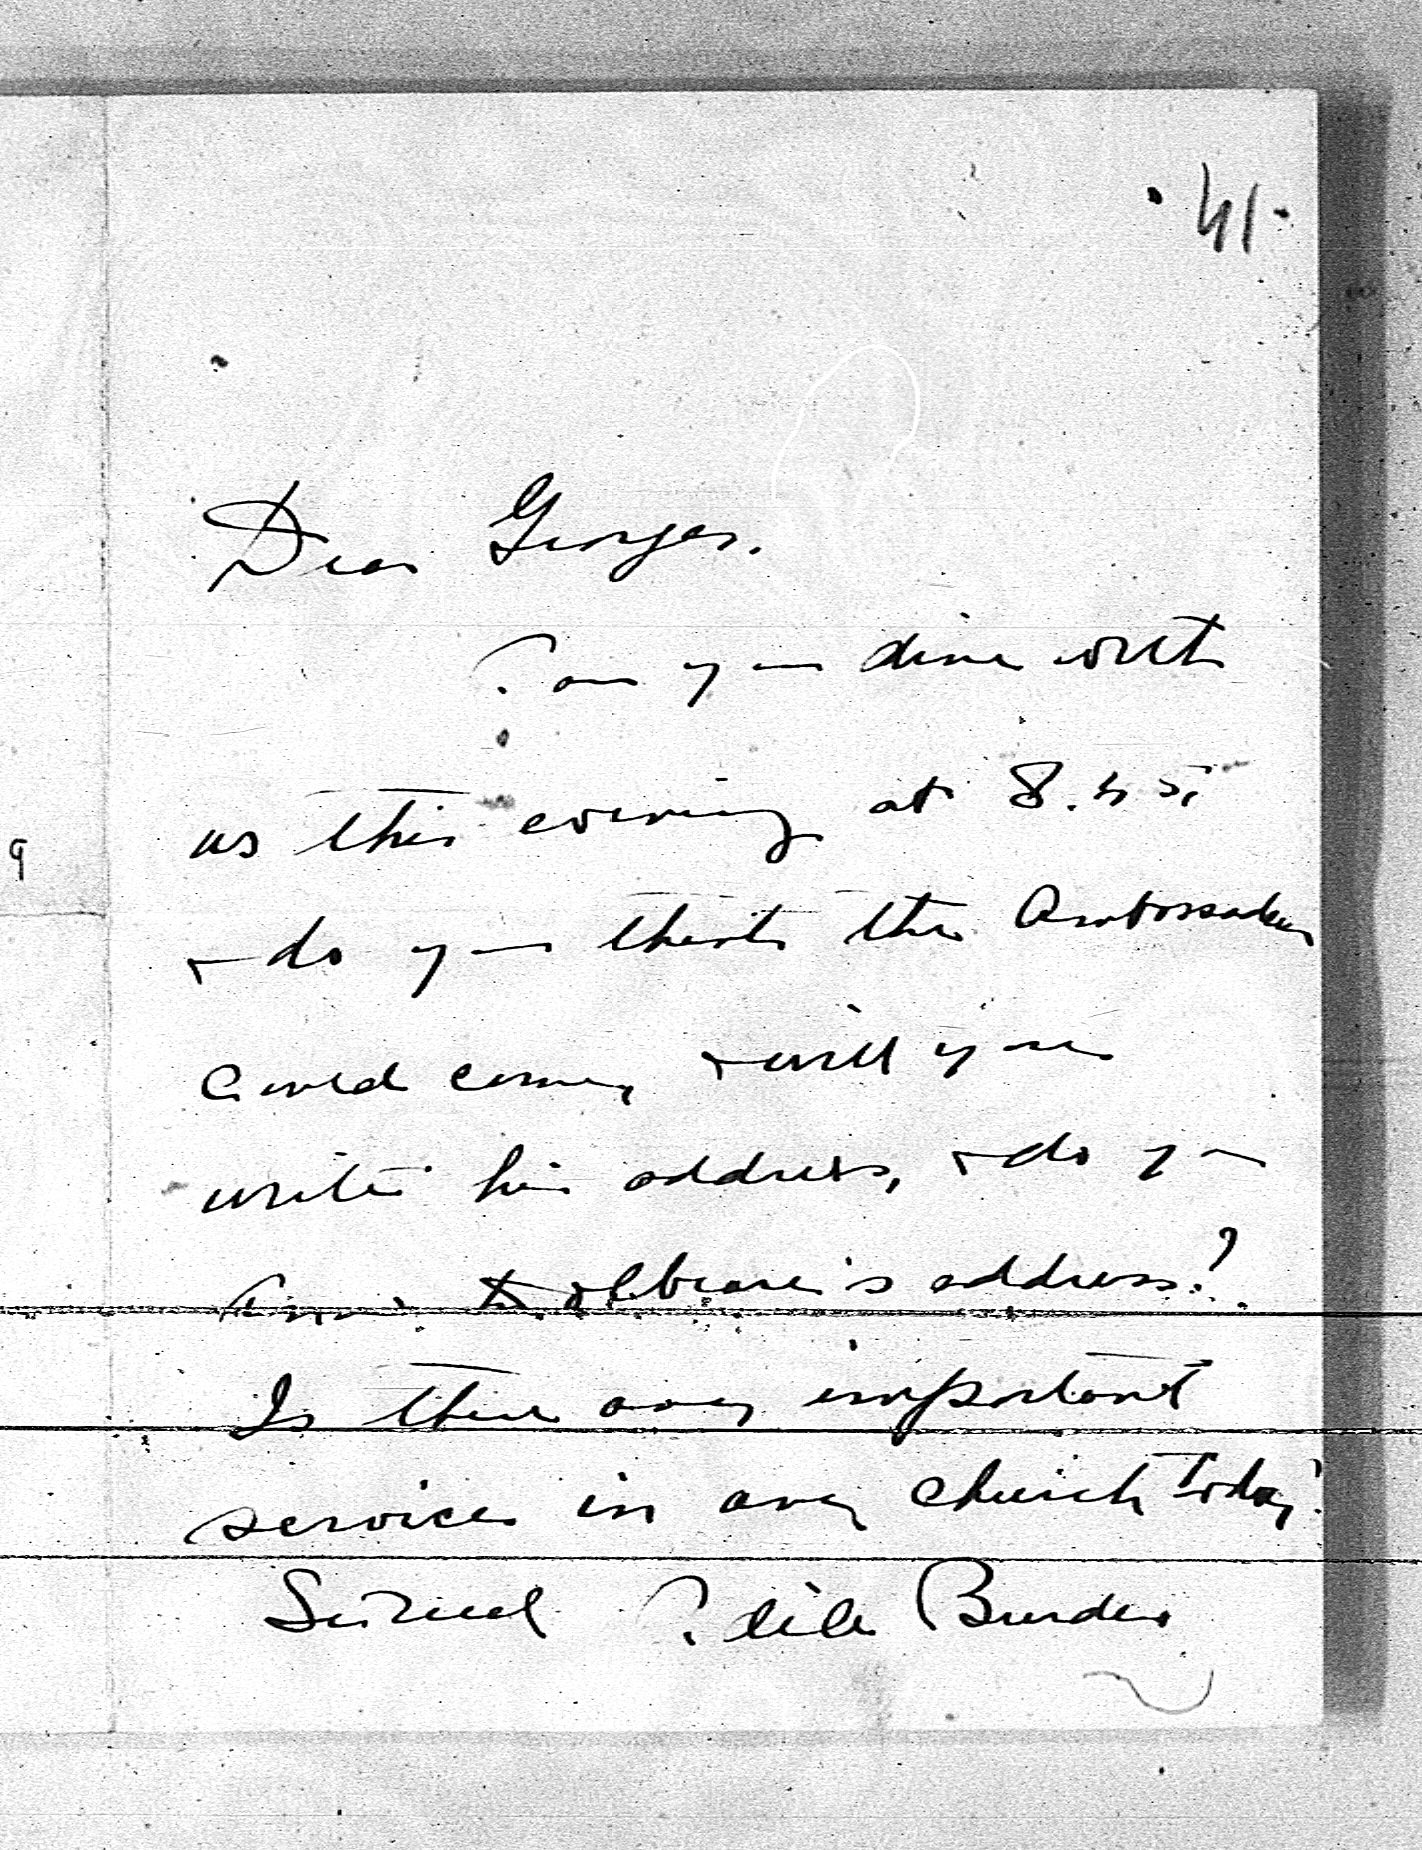 41.
Dear Georges.
Can you dine with
us this evening at 8.45,
9
& do you think the Ambassador
could come, & will you
write his address, & do you
address?
Is there any important
service in any church today?
Burden